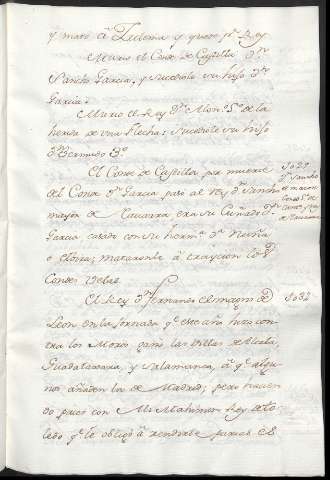 y mató á y quedó pr. Rey
Murio el Conde de Castilla Dn.
Sancho Garcia, y sucediole su hijo Dn.
Garcia.
Murio el Rey Dn. Alonso 5º. de la
herida de una flecha: sucediole su hijo
Dn. Bermudo 3º.
El Conde de Castilla por muerte
del Conde Dn. Garcia pasó al Rey Dn. Sancho
mayor de Navarra, era su Cuñado Dn.
Garcia casado con su hermna. Da. Nuña
o Elvira; mataronle á traycion los
Condes Velas.
1029
Dn. Sancho
de Navarra
El Rey Dn. Fernando el magno de
1032
Leon en la Jornada qe. este año hizo con
tra los Moros ganó las Villas de Alcala,
Guadalaxara, y Salamanca, á qe. algu
nos añaden la de Madrid; pero havien
do paces con Ali Mahimon Rey de To
ledo qe. le obligó á rendirle parias el